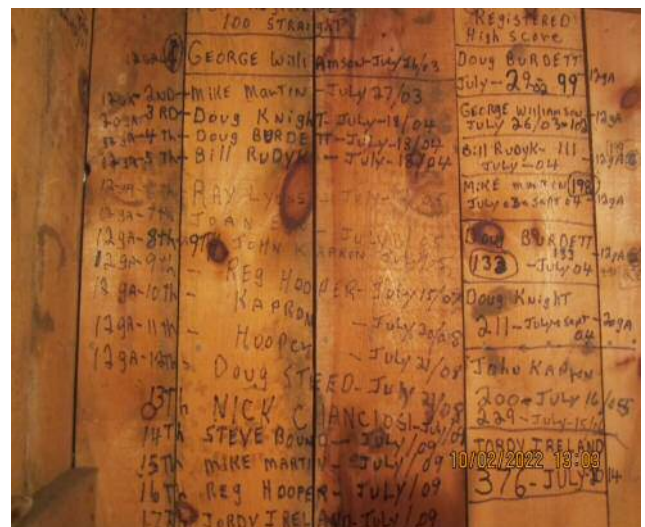 100 STRAIGHT
GEORGE Williamson-July/26/03
12gA-2ND-MIKE MarTIN-July 27/03
20gA-3RD-Doug Knight-July-18/04
4th-Doug BURDETT-July-18/04
12gA-5Th-Bill RuDyk-July-18/04
RAY
JOAN
12gA-8Th-9Th JOHN KAPRON
12gA-9Th - REG HOOPER-July/15/07
12gA-10Th - KAPRON
12gA-11Th - HOOPER - July/20/08
12gA-12Th - Doug STEED-July/21/08
13Th NICK CIANCIOSI-July
14Th STEVE BOUND-July/09
15Th MIKE MARTIN-July/09
16Th Reg HOOPER-July/09
17Th JORDY IRELAND-July/09
REGISTERED
High Score
Doug BURDETT
July-29 02 99 12gA
GEORGE Williamson
JULY 26/03-102 12gA
Bill RuDyk-111
July-04 12gA
MIKE martin 198
July 03-Sept 04 12gA
Doug BURDETT
133 -July 04
Doug Knight
211-July-Sept 04 20gA
John KAPRON
200-July 16/05
229-July-15/
JORDY IRELAND
376-JULY-2014
10/02/2022 13:09